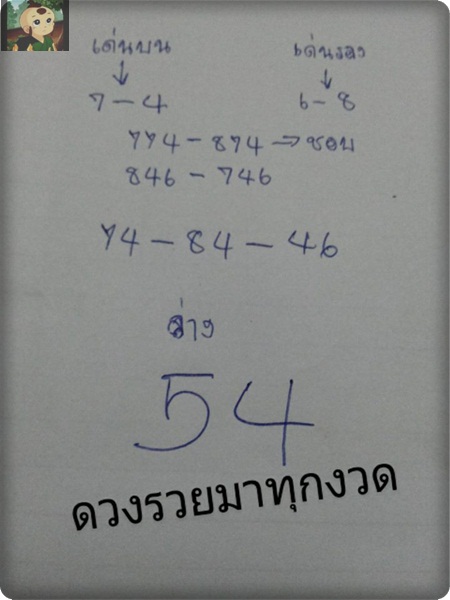 เด่นบน เด่นรอง
7-4 6-8
774-874→ชอบ
846-746
74-84-46
ล่าง
54
ดวงรวยมาทุกงวด